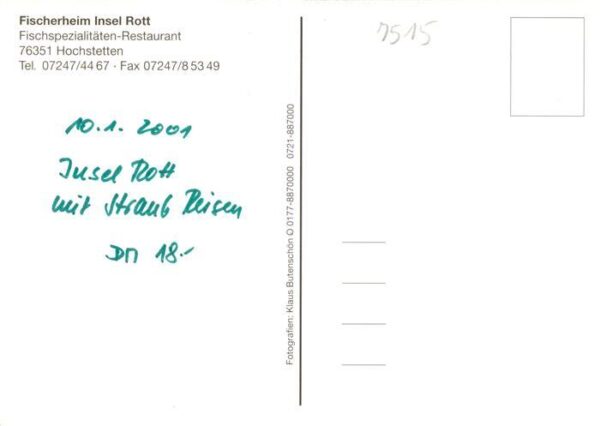 Fischerheim Insel Rott
Fischspezialitäten-Restaurant
76351 Hochstetten
Tel. 07247/44 67 · Fax 07247/8 53 49
7515
10.1. 2001
Insel Rott
mit Straub Reisen
DM 18.-
Fotografien: Klaus Butenschön O 0177-8870000 0721-887000